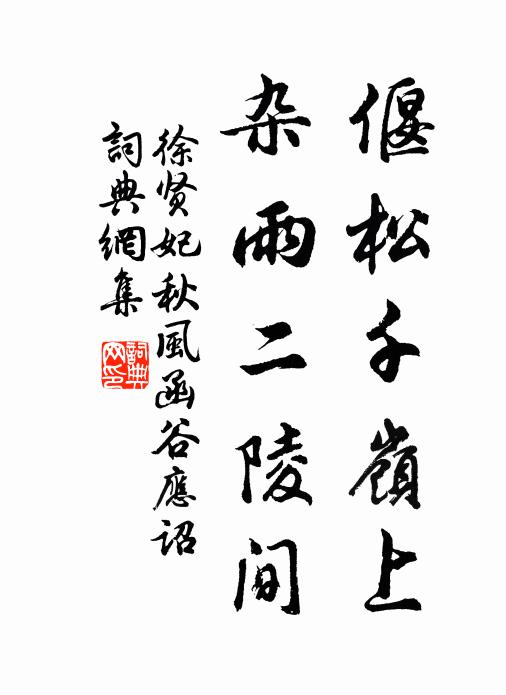 偃松千嶺上
杂雨二陵间
徐贤妃秋風函谷應詔
詞典網集
詞典网印